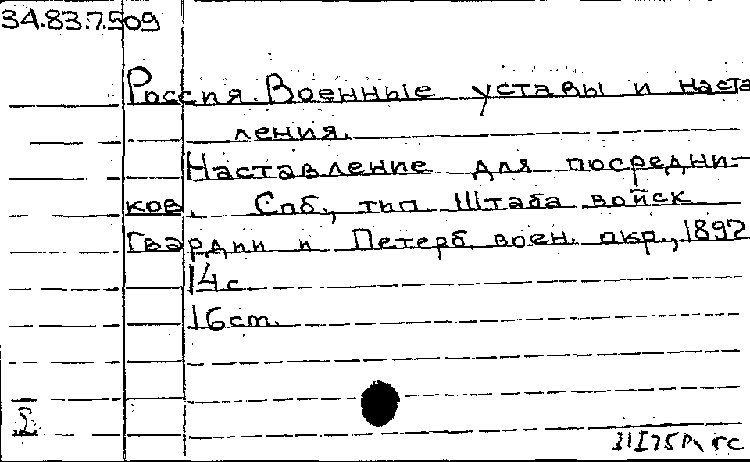 34.83.7.509
Россия. Военные уставы и наста
ления.
Наставление для посредни-
ков. Спб., тип Штаба войск
Гвардии и Петерб. воен. окр., 1892
14с.
16ст.